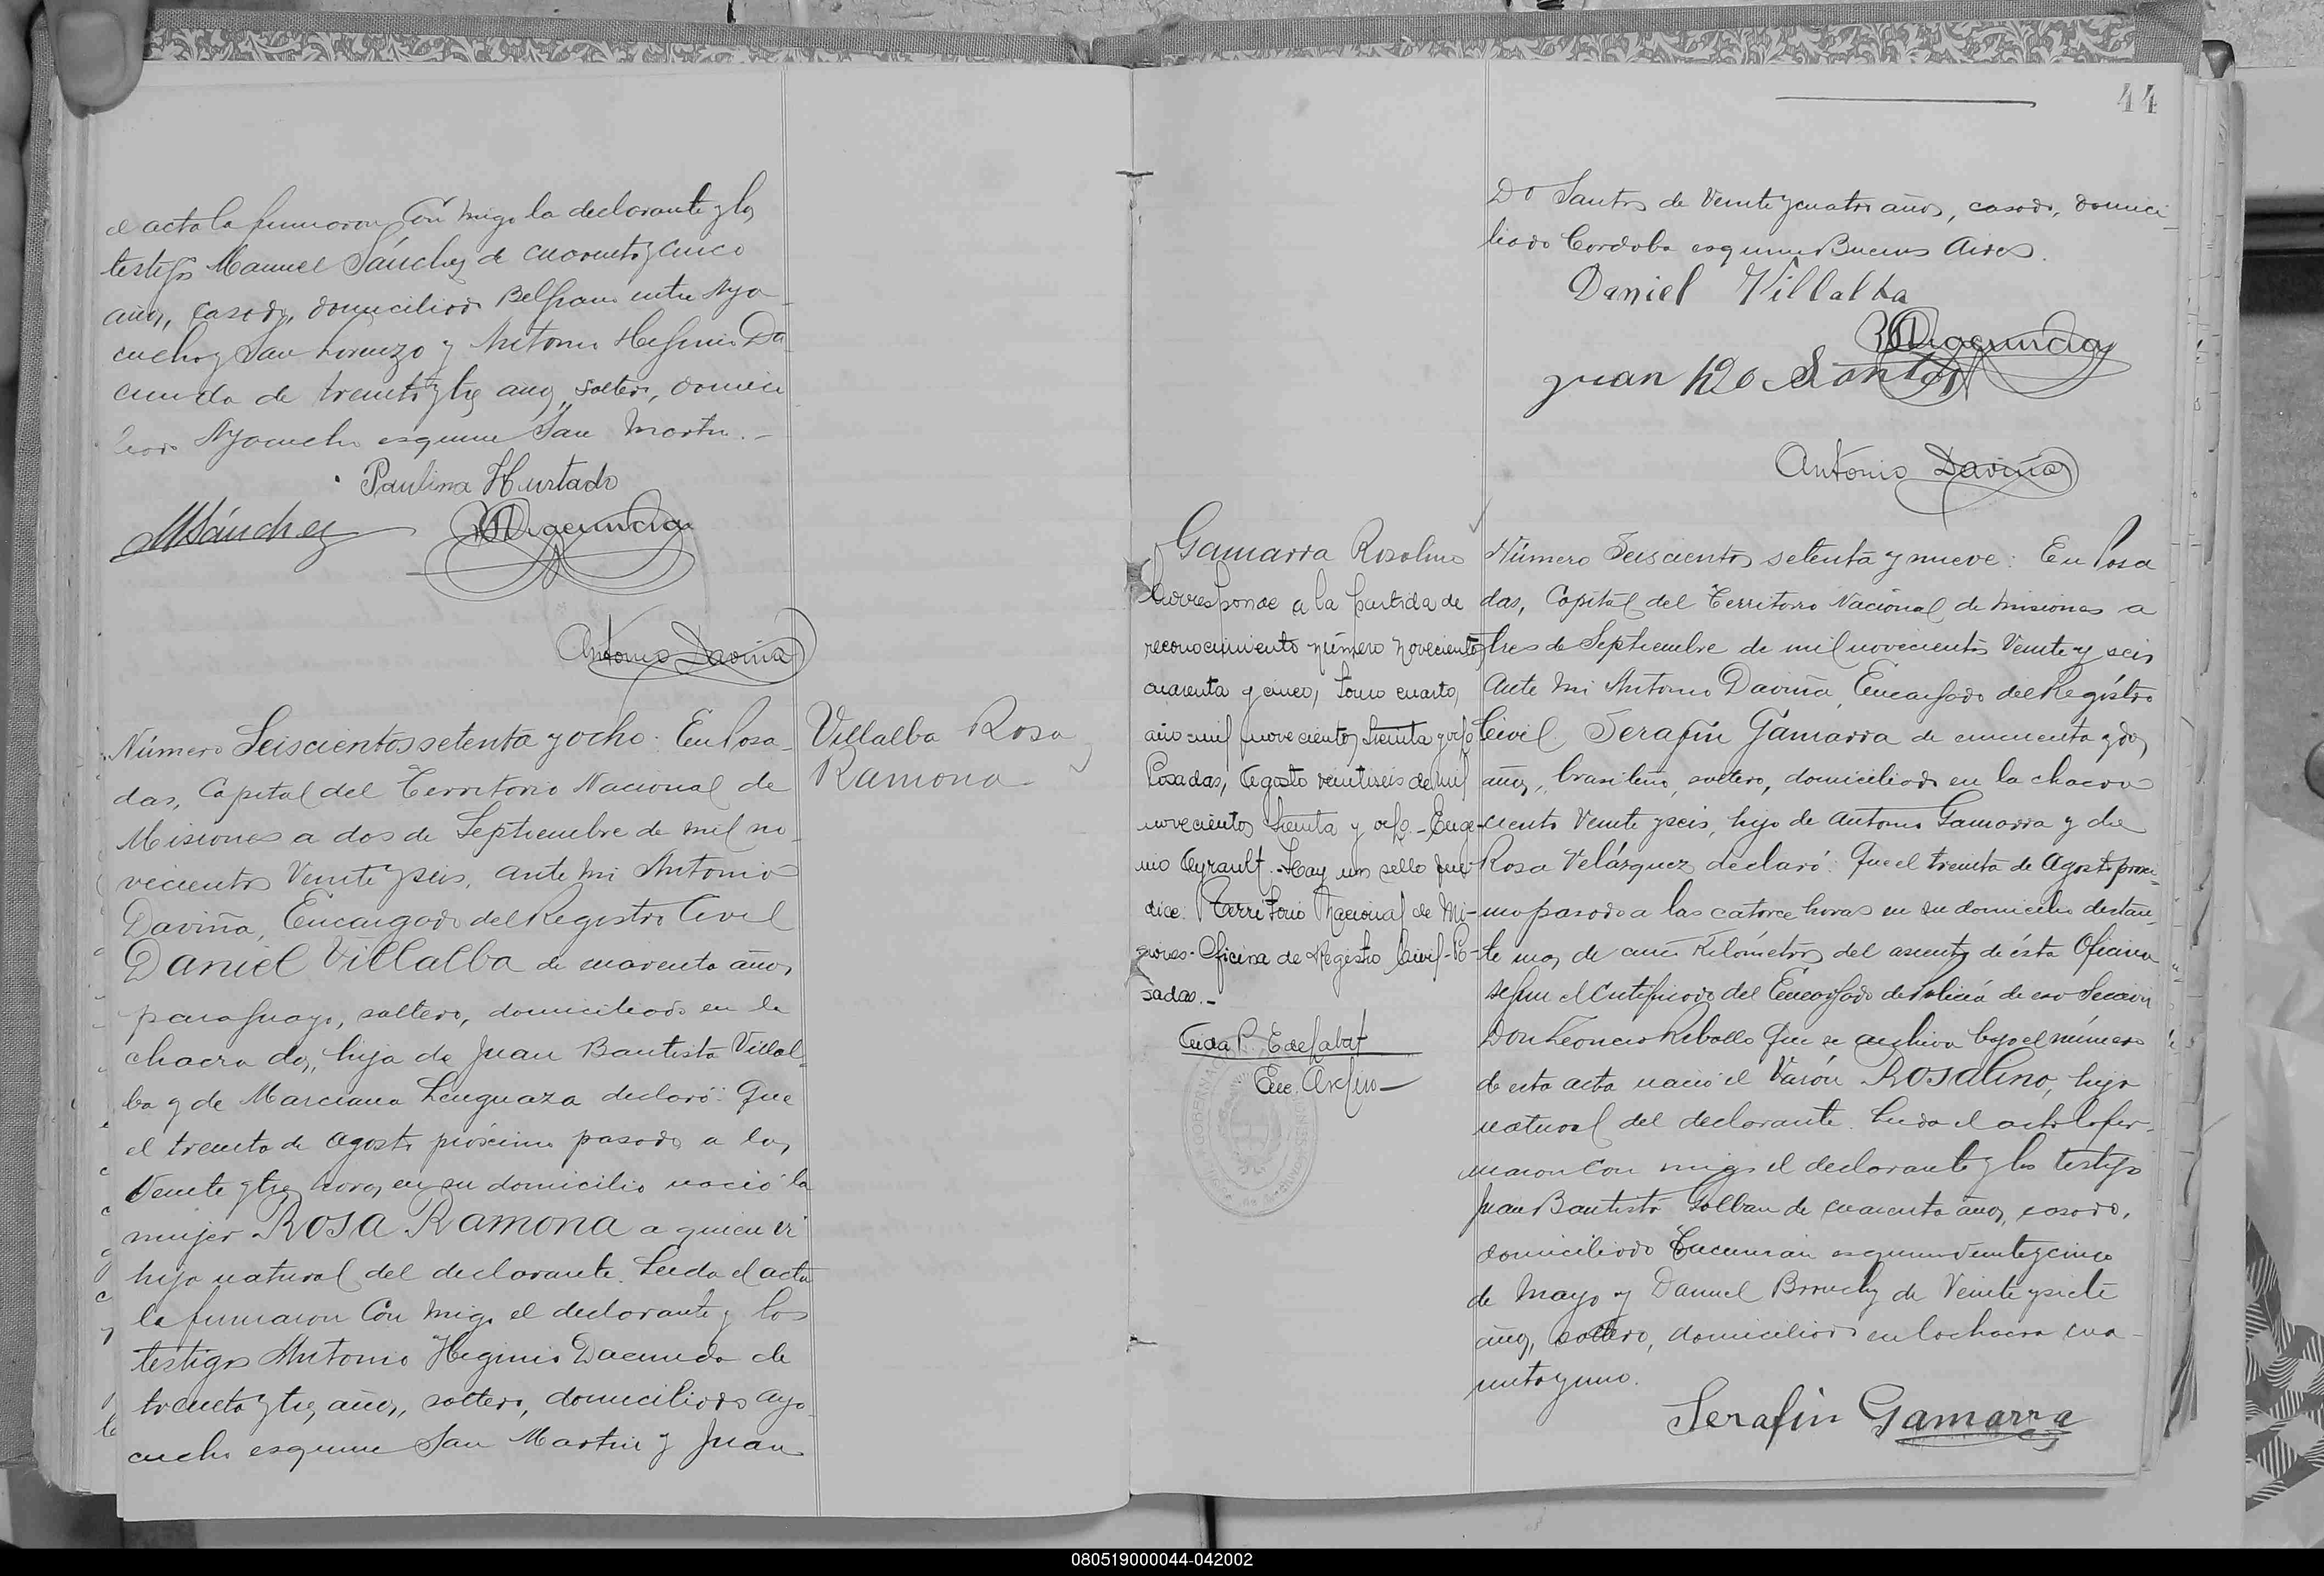 el acta la firmaron con migo la declarante y los
testigos Manuel Sánchez de cuarenta y cinco
años, casado, domiciliado Belgrano entre Aya-
cucho y San Lorenzo y Antonio Higinio Da-
cunda de treinta y tres años, soltero, domici
liado Ayacucho esquina San Martin.-
Paulina Hurtado
MSánchez
Antonio Daviña
Número Seiscientos setenta y ocho: En Posa-
das, Capital del Territorio Nacional de
Misiones a dos de Septiembre de mil no-
vecientos Veinte y seis, ante mi Antonio
Daviña, Encargado del Registro Civil
Daniel Villalba de cuarenta años,
paraguayo, soltero, domiciliado en la
chacra dos, hijo de Juan Bautista Villal-
ba y de Marciana Lenguaza declaró: Que
el treinta de Agosto próximo pasado a las
Veinte y tres horas, en su domicilio nació la
mujer Rosa Ramona a quien vi
hija natural del declarante. Leida el acta
la firmaron con migo el declarante y los
testigos Antonio Higinio Dacunda de
treinta y tres años, soltero, domiciliado Aya-
cucho esquina San Martin y Juan
Villalba Rosa
Ramona
44
Do Santos de Veinte y cuatro años, casado, domici-
liado Cordoba esquina Buenos Aires.
Daniel Villalba
Juan Do Santos
Antonio Daviña
Gamarra Rosalino
Corresponde a la partida de
reconocimiento número novecientos
cuarenta y cinco, tomo cuarto,
año mil novecientos treinta y ocho
Posadas, Agosto veintiseis de mil
novecientos treinta y ocho.- Euge-
nio Ayrault.- Hay un sello que
dice: Territorio Nacional de Mi-
siones- Oficina de Registro Civil- Po-
sadas.-
Enc. Archivo
Número Seiscientos setenta y nueve: En Posa
das, Capital del Territorio Nacional de Misiones a
tres de Septiembre de mil novecientos Veinte y seis,
Ante mi Antonio Daviña, Encargado del Registro
Civil Serafin Gamarra de cincuenta y dos
años, brasileño, soltero, domiciliado en la chacra
ciento Veinte y seis, hijo de Antonio Gamarra y de
Rosa Velázquez declaró: Que el treinta de Agosto próxi-
mo pasado a las catorce horas en su domicilio distan-
te mas de cinco Kilómetros del asiento de ésta Oficina
segun el Certificado del Encargado de Policía de esa Sección
Don Leoncio Rebollo que se archiva bajo el número
de esta acta nació el Varón Rosalino, hijo
natural del declarante. Leida el acta la fir-
maron con migo el declarante y los testigos
Juan Bautista Galban de cuarenta años, casado,
domiciliado Tucuman esquina Veinte y cinco
de Mayo y Daniel de Veinte y siete
años, soltero, domiciliado en la chacra cua-
renta y uno.
Serafin Gamarra
080519000044-042002